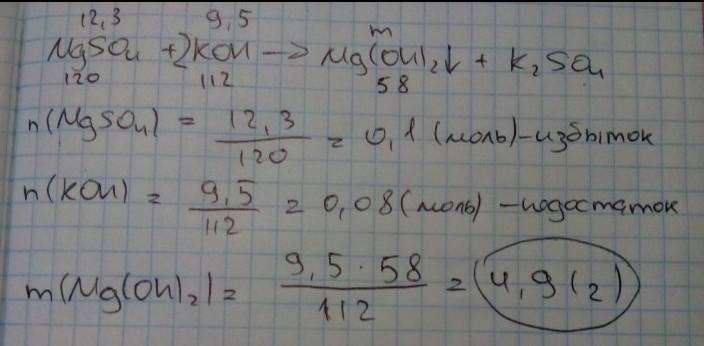 12,3 9,5 m
MgSO₄ + 2KOH → Mg(OH)₂↓ + K₂SO₄
120 112 58
n(MgSO₄) = 12,3/120 = 0,1 (моль) – избыток
n(KOH) = 9,5/112 = 0,08 (моль) – недостаток
m(Mg(OH)₂) = 9,5 · 58/112 = 4,9 (г)